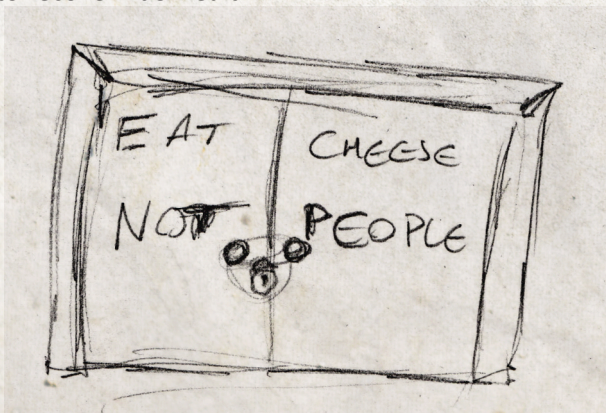 EAT CHEESE
NOT PEOPLE